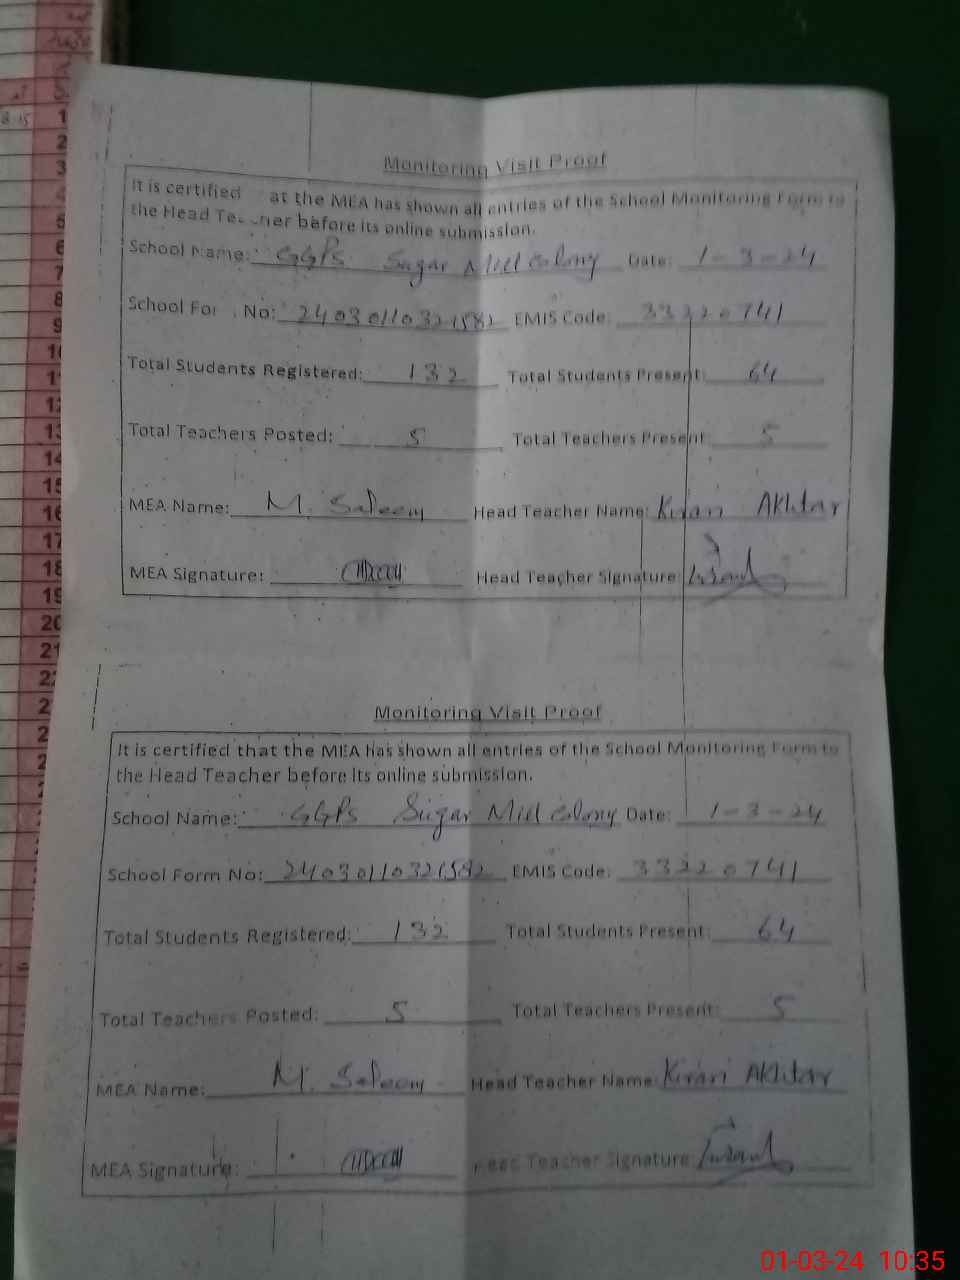 8:15
1
2
3
4
5
6
7
8
9
10
11
12
13
14
15
16
17
18
19
20
21
22
Monitoring Visit Proof
It is certified at the MEA has shown all entries of the School Monitoring Form to
the Head Teacher before its online submission.
School Name: GGPS Sugar Mill Colony Date: 1-3-24
School For No: 2403011032582 EMIS Code: 33220741
Total Students Registered: 132 Total Students Present: 64
Total Teachers Posted: 5 Total Teachers Present: 5
MEA Name: M. Saleem Head Teacher Name: Kiran Akhtar
MEA Signature: Head Teacher Signature:
Monitoring Visit Proof
It is certified that the MEA has shown all entries of the School Monitoring Form to
the Head Teacher before its online submission.
School Name: GGPS Sugar Mill Colony Date: 1-3-24
School Form No: EMIS Code: 33220741
Total Students Registered: 132 Total Students Present: 64
Total Teachers Posted: 5 Total Teachers Present: 5
MEA Name: M. Saleem Head Teacher Name: Kiran Akhtar
MEA Signature: Head Teacher Signature:
01-03-24 10:35